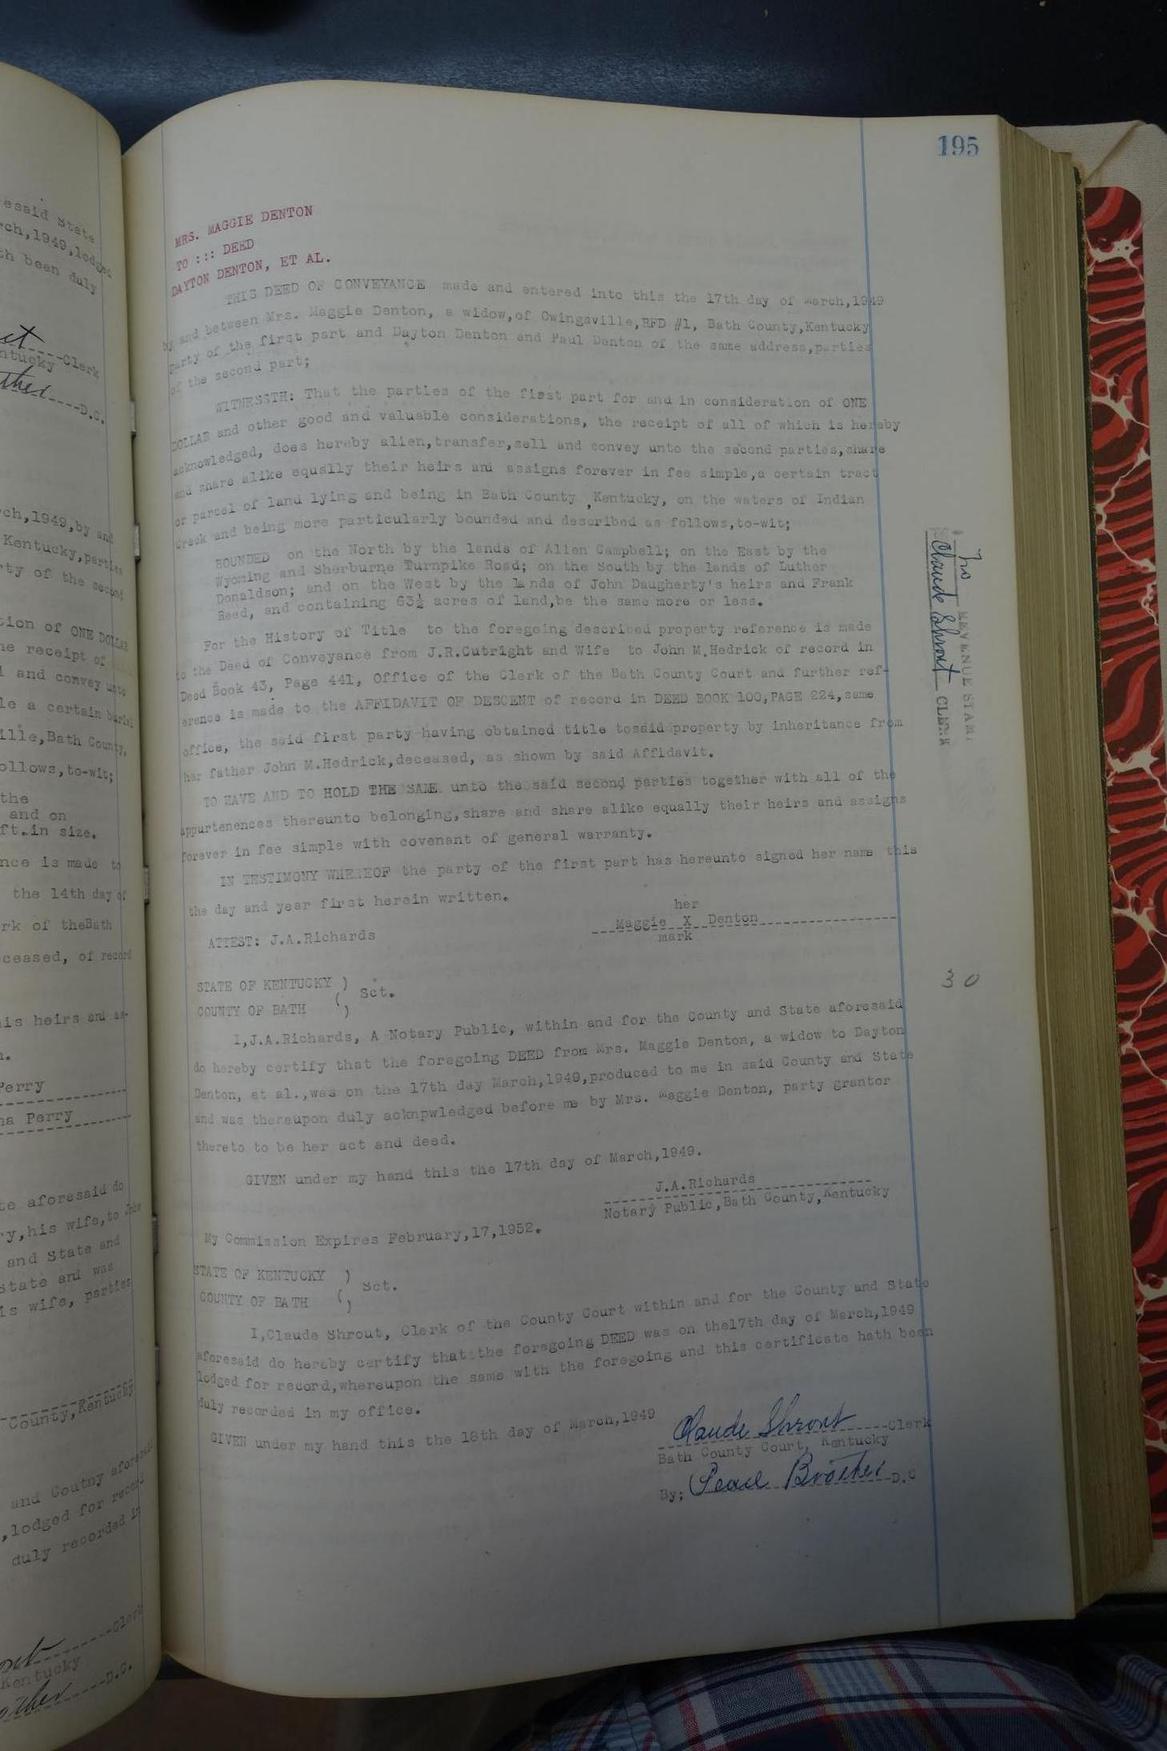 195
MRS. MAGGIE DENTON
TO ::: DEED
DAYTON DENTON, ET AL.
THIS DEED OF CONVEYANCE made and entered into this the 17th day of March,1949
by and between Mrs. Maggie Denton, a widow,of Owingsville,RFD #1, Bath County,Kentucky
party of the first part and Dayton Denton and Paul Denton of the same address,parties
of the second part;
WITNESSTH: That the parties of the first part for and in consideration of ONE
DOLLAR and other good and valuable considerations, the receipt of all of which is hereby
acknowledged, does hereby alien,transfer,sell and convey unto the second parties,share
and share alike equally their heirs and assigns forever in fee simple,a certain tract
or parcel of land lying and being in Bath County ,Kentucky, on the waters of Indian
Creek and being more particularly bounded and described as follows,to-wit;
BOUNDED on the North by the lands of Allen Campbell; on the East by the
Wyoming and Sherburne Turnpike Road; on the South by the lands of Luther
Donaldson; and on the West by the lands of John Daugherty's heirs and Frank
Reed, and containing 63½ acres of land,be the same more or less.
For the History of Title to the foregoing described property reference is made
to the Deed of Conveyance from J.R.Cutright and Wife to John M.Hedrick of record in
Deed Book 43, Page 441, Office of the Clerk of the Bath County Court and further ref-
erence is made to the AFFIDAVIT OF DESCENT of record in DEED BOOK 100,PAGE 224,same
office, the said first party having obtained title tosaid property by inheritance from
her father John M.Hedrick,deceased, as shown by said Affidavit.
TO HAVE AND TO HOLD THE SAME unto the said second parties together with all of the
appurtenences thereunto belonging,share and share alike equally their heirs and assigns
forever in fee simple with covenant of general warranty.
IN TESTIMONY WHEREOF the party of the first part has hereunto signed her name this
the day and year first herein written.
her
ATTEST: J.A.Richards
Maggie X Denton
mark
STATE OF KENTUCKY )
( Sct.
COUNTY OF BATH )
I,J.A.Richards, A Notary Public, within and for the County and State aforesaid
do hereby certify that the foregoing DEED from Mrs. Maggie Denton, a widow to Dayton
Denton, et al.,was on the 17th day March,1949,produced to me in said County and State
and was thereupon duly acknpwledged before me by Mrs. Maggie Denton, party grantor
thereto to be her act and deed.
GIVEN under my hand this the 17th day of March,1949.
J.A.Richards
Notary Public,Bath County,Kentucky
My Commission Expires February,17,1952.
STATE OF KENTUCKY )
( Sct.
COUNTY OF BATH )
I,Claude Shrout, Clerk of the County Court within and for the County and State
aforesaid do hereby certify that the foregoing DEED was on the17th day of March,1949
lodged for record,whereupon the same with the foregoing and this certificate hath been
duly recorded in my office.
GIVEN under my hand this the 18th day of March,1949
Claude Shrout Clerk
Bath County Court, Kentucky
By; Pearl Brother D.C
No REVENUE STAMP
Claude Shrout CLERK
30
esaid State
rch,1949,lodged
th been duly
Clerk
ntucky
D.C.
rch,1949,by and
Kentucky,parties
rty of the second
tion of ONE DOLLAR
he receipt of
l and convey unto
le a certain burial
ille,Bath County,
ollows,to-wit;
the
and on
ft.in size.
nce is made to
the 14th day of
rk of theBath
ceased, of record
his heirs and as-
Perry
na Perry
te aforesaid do
ry,his wife,to
and State and
State and was
is wife, parties
County,Kentucky
and Coutny aforesaid
,lodged for record
duly recorded in
Clerk
Kentucky
D.C.